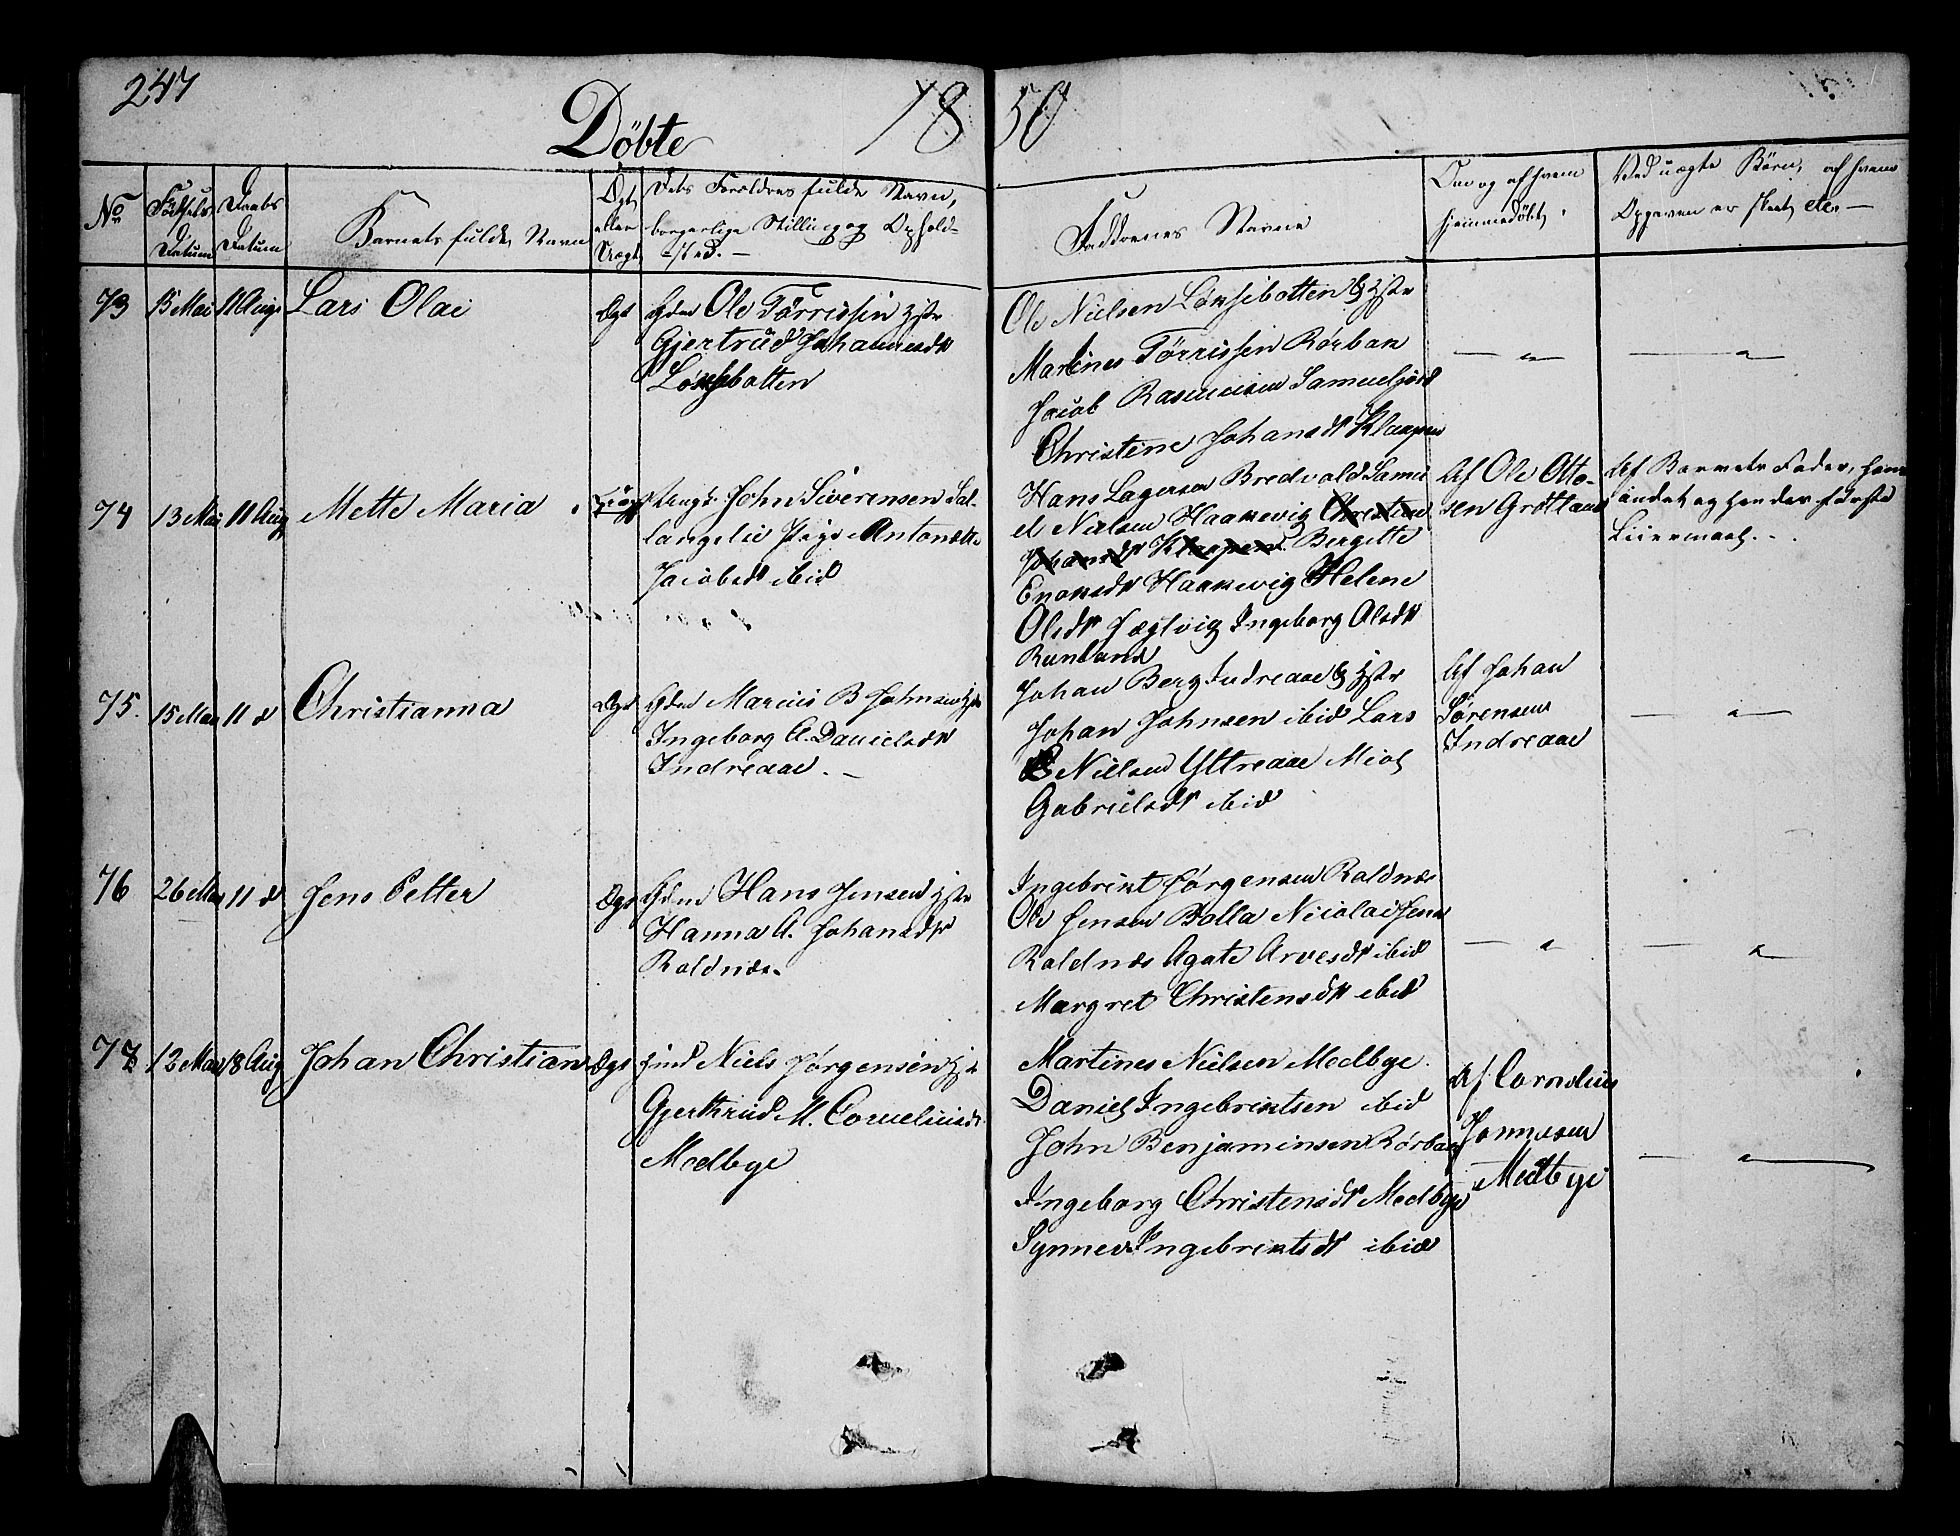 247
Döbte 1850
No
Födsels Datum
Daabs Datum
Barnets fulde Navn
Ægte eller Uægte
Dets Forældres fulde Navn, borgerlige Stilling og Opholdssted. –
Faddernes Navne
Om og af hvem hjemmedöbt.
Ved uægte Börn, af hvem Opgaven er skeet etc. –
73 15 Mai 11 Aug Lars Olai Ægt Gdm Ole Törrissen Hstr
Gjertrud Johannesdtr
Löksebotten
Ole Nielsen Löksebotten & Hstr
Martines Törrissen Rörbak
Jacob Rasmusen Samuelsjord
Christine Johansdtr Klaapen
74 13 Mai 11 Aug Mette Maria Uægt Ungk. John Siverensen Sal-
langslie Pige Antonette
Jacobsdtr ibid
Hans Lagersen Bredvold Samu
el Nielsen Haakevig Christine
Johansdtr Klaapen Bergitte
Enoksdtr Haakevig Helene
Olsdtr Fægtvig Ingeborg Olsdtr
Runland
Af Ole Otto-
sen Gröttland
Af Barnets Fader, hans
andet og hendes förste
Leiermaal. –
75. 15 Mai 11 d Christianna Ægt Gdm Marius B Johnsen Hstr
Ingeborg A. Danielsdtr
Indreaae. –
Johan Berg Indreaae & Hstr
Johan Johnsen ibid Lars
Nielsen Yttreaae Miol
Gabrielsdtr ibid
Af Johan
Sörensen
Indreaae
76 26 Mai 11 d Jens Petter Ægt Gdm Hans Jensen Hstr
Hanna A. Johansdtr
Roldnæs.
Ingebrikt Jörgensen Roldnæs
Ole Jensen Bolla Nicolai Jens
Roldnæs Agate Arvesdtr ibid
Margret Christensdtr ibid
77 12 Mai 18 Aug Johan Christian Ægt Ind Niels Jörgensen Hst
Gjerthrud M. Corneliusdr
Medbye
Martines Nielsen Medbye.
Daniel Ingebriktsen ibid
John Benjaminsen Rörbak
Ingeborg Christensdtr Medbye
Synnev Ingebriktsdtr ibid
Af Cornelius
Jonnesen
Medbye